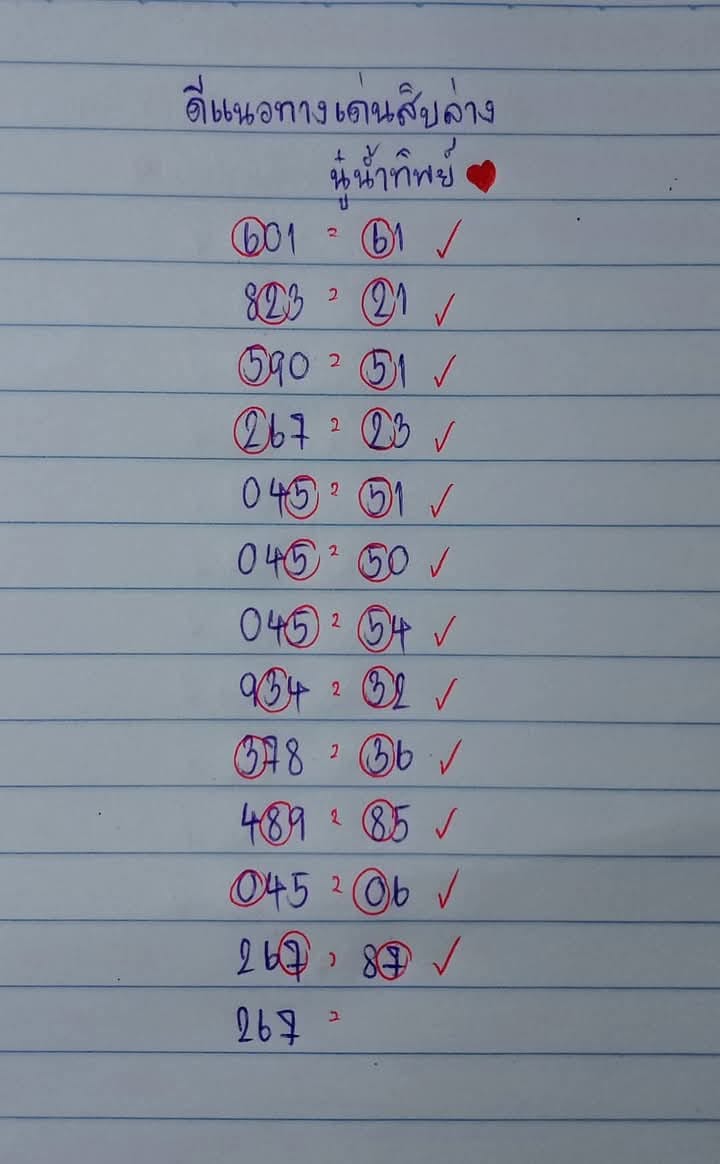 ดีแนวทางเด่นสิบล่าง
นู๋น้ำทิพย์
601 = 61 ✓
823 = 21 ✓
590 = 51 ✓
267 = 23 ✓
045 = 51 ✓
045 = 50 ✓
045 = 54 ✓
934 = 32 ✓
378 = 36 ✓
489 = 85 ✓
045 = 06 ✓
267 = 87 ✓
267 =